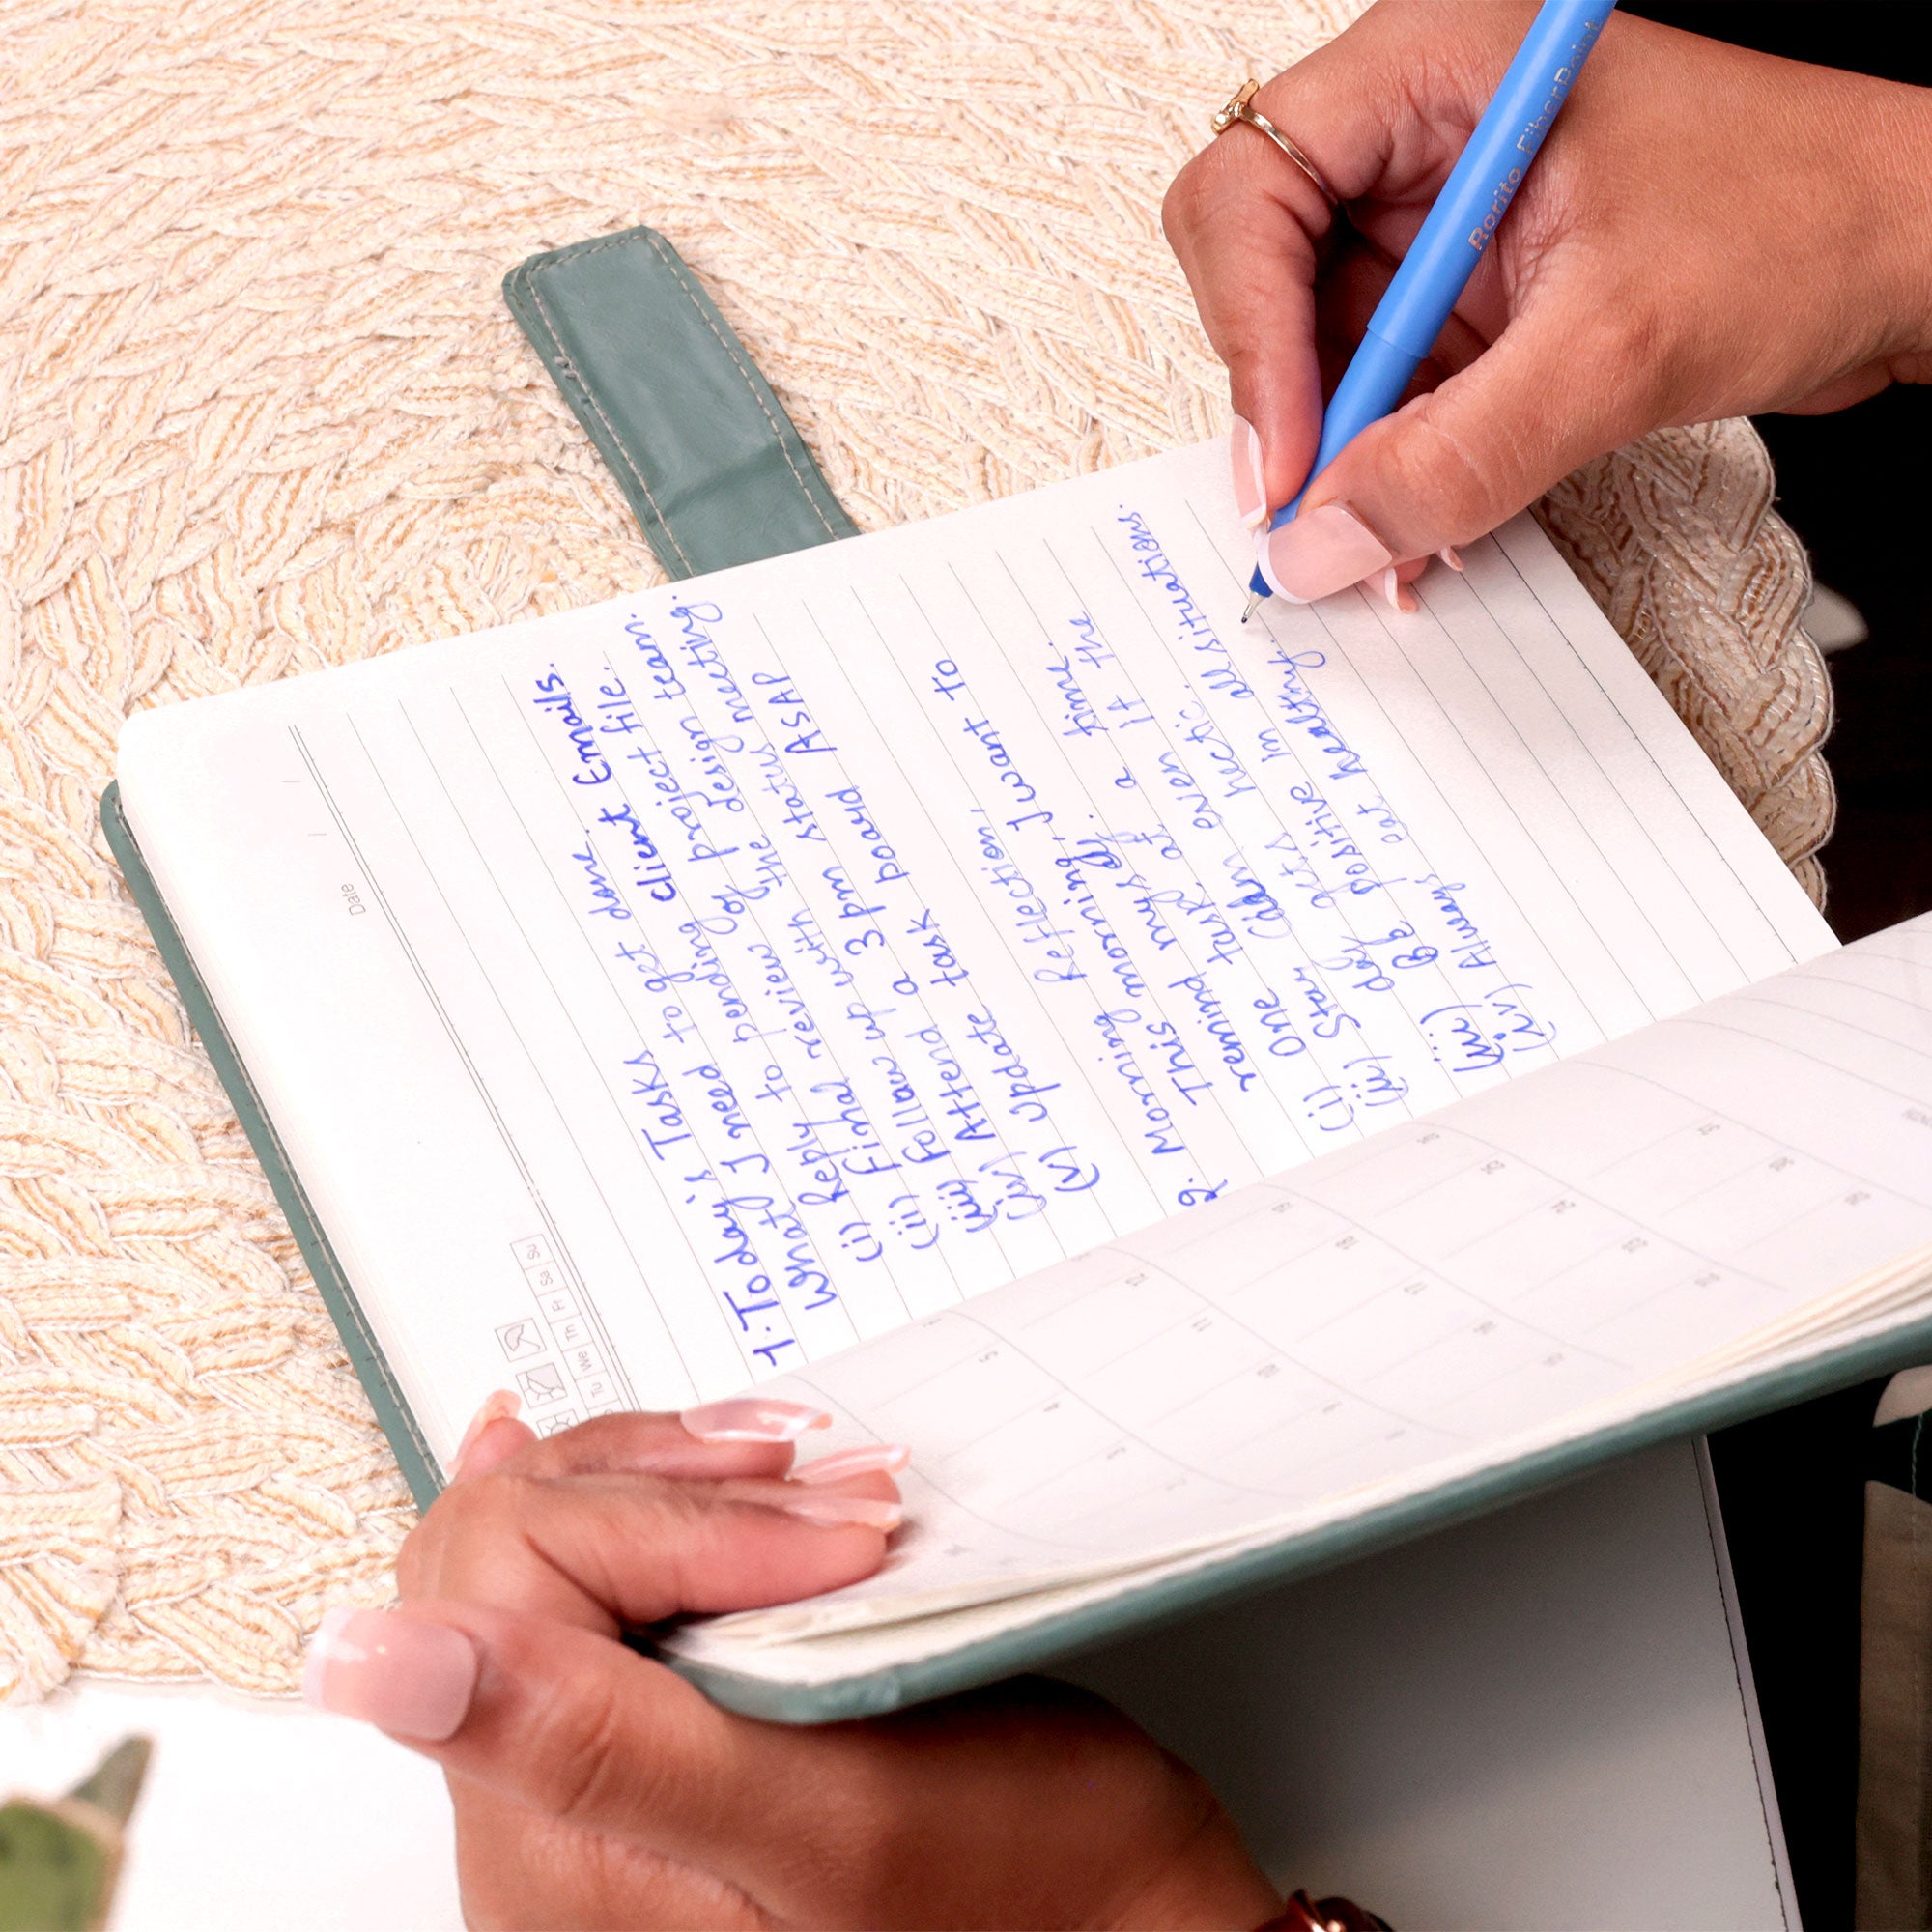 Rorito FiberPoint
Date / /
Tu We Th Fr Sa Su
1. Today's Tasks
What I need to get done.
(i) Reply to pending client Emails.
(ii) Final review of project file.
(iii) Follow up with the design team.
(iv) Attend a 3 pm status meeting.
(v) Update task board ASAP
2. Morning Reflection,
This morning, I want to
remind myself.
(i) One task at a time.
(ii) Stay calm even it the
day gets hectic.
(iii) Be positive in all situations.
(iv) Always eat healthy.